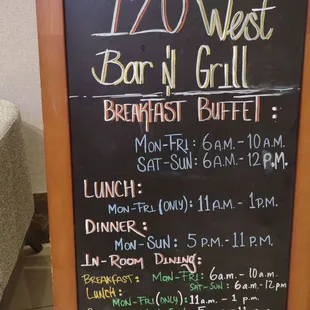 120 West
Bar N' Grill
BREAKFAST BUFFET :
MON-FRI : 6 A.M. - 10 A.M.
SAT-SUN : 6 A.M. - 12 P.M.
LUNCH :
MON-FRI (ONLY) : 11 A.M. - 1 P.M.
DINNER :
MON-SUN : 5 P.M. - 11 P.M.
IN-ROOM DINING :
BREAKFAST : MON-FRI : 6 a.m. - 10 a.m.
SAT-SUN : 6 a.m. - 12 p.m
LUNCH :
MON-FRI (ONLY) : 11 a.m. - 1 p.m.